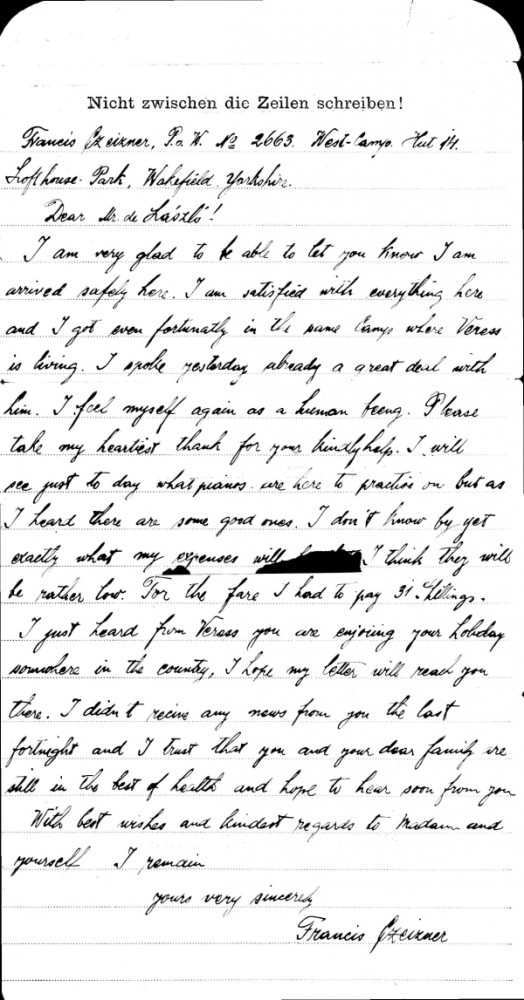 Nicht zwischen die Zeilen schreiben!
Francis Czeizner, P.o.W. No 2663. West-Camp. Hut 14.
Lofthouse-Park, Wakefield. Yorkshire.
Dear Mr. de László!
I am very glad to be able to let you know I am
arrived safely here. I am satisfied with everything here
and I got even fortunatly in the same Camp where Veress
is living. I spoke yesterday already a great deal with
him. I feel myself again as a human beeng. Please
take my heartiest thank for your kindly help. I will
see just to day what pianos are here to practise on but as
I heard there are some good ones. I don't know by yet
exactly what my expenses will I think they will
be rather low. For the fare I had to pay 31 Shillings.
I just heard from Veress you are enjoiing your holiday
somwhere in the country, I hope my letter will reach you
there. I didn't recive any news from you the last
fortnight and I trust that you and your dear family are
still in the best of health and hope to hear soon from you
With best wishes and kindest regards to Madam and
yourself I remain
yours very sincerely
Francis Czeizner